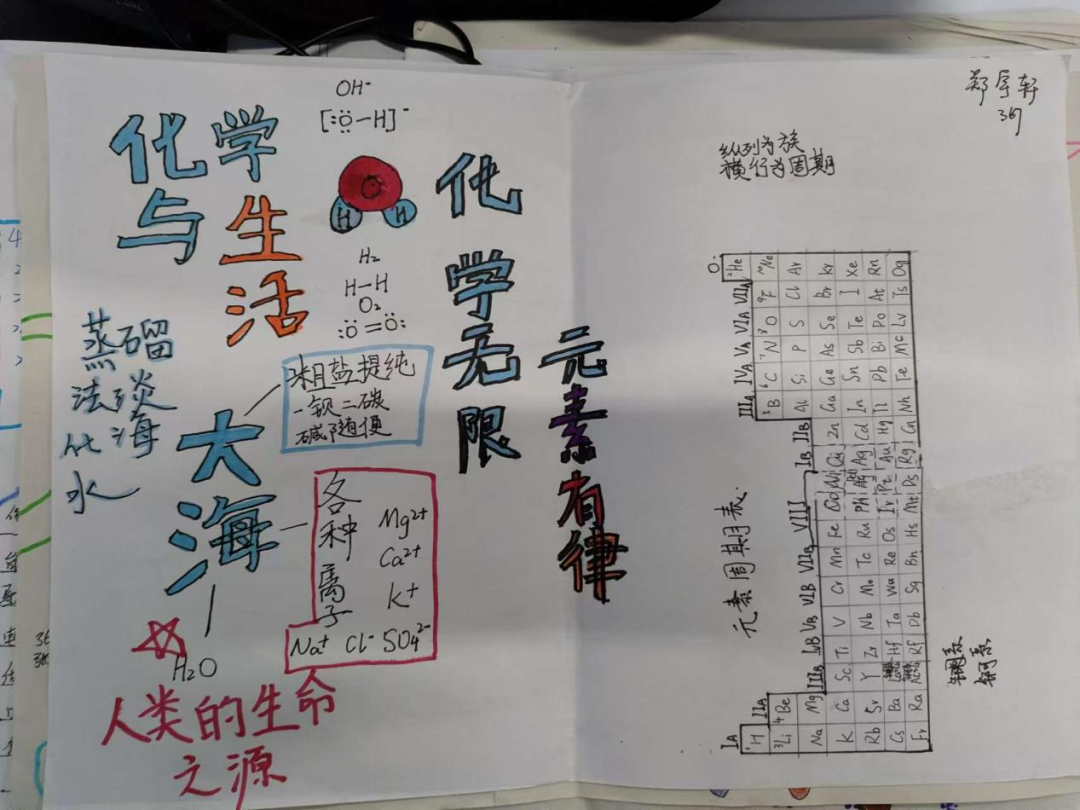 化学
与生
活
OH⁻
[:Ö–H]⁻
O
H H
H₂
H–H
O₂
:Ö=Ö:
化
学
无
限
元
素
有
律
蒸馏
法淡
化海
水
大
海
粗盐提纯
-钡二碳
碱随便
各
种
离
子
Mg²⁺
Ca²⁺
K⁺
Na⁺ Cl⁻ SO₄²⁻
H₂O
人类的生命
之源
郑宇轩
367
纵列为族
横行为周期
元素周期表
IA IIA IIIB IVB VB VIB VIIB VIII IB IIB IIIA IVA VA VIA VIIA O
¹H ²He
³Li ⁴Be ⁵B ⁶C ⁷N ⁸O ⁹F ¹⁰Ne
Na Mg Al Si P S Cl Ar
K Ca Sc Ti V Cr Mn Fe Co Ni Cu Zn Ga Ge As Se Br Kr
Rb Sr Y Zr Nb Mo Tc Ru Rh Ag Cd In Sn Sb Te I Xe
Cs Ba Hf Ta Wa Re Os Ir Pt Au Hg Tl Pb Bi Po At Rn
Fr Ra Rf Db Sg Bh Hs Mt Ds Rg Cn Nh Fe Mc Lv Ts Og
镧系
锕系